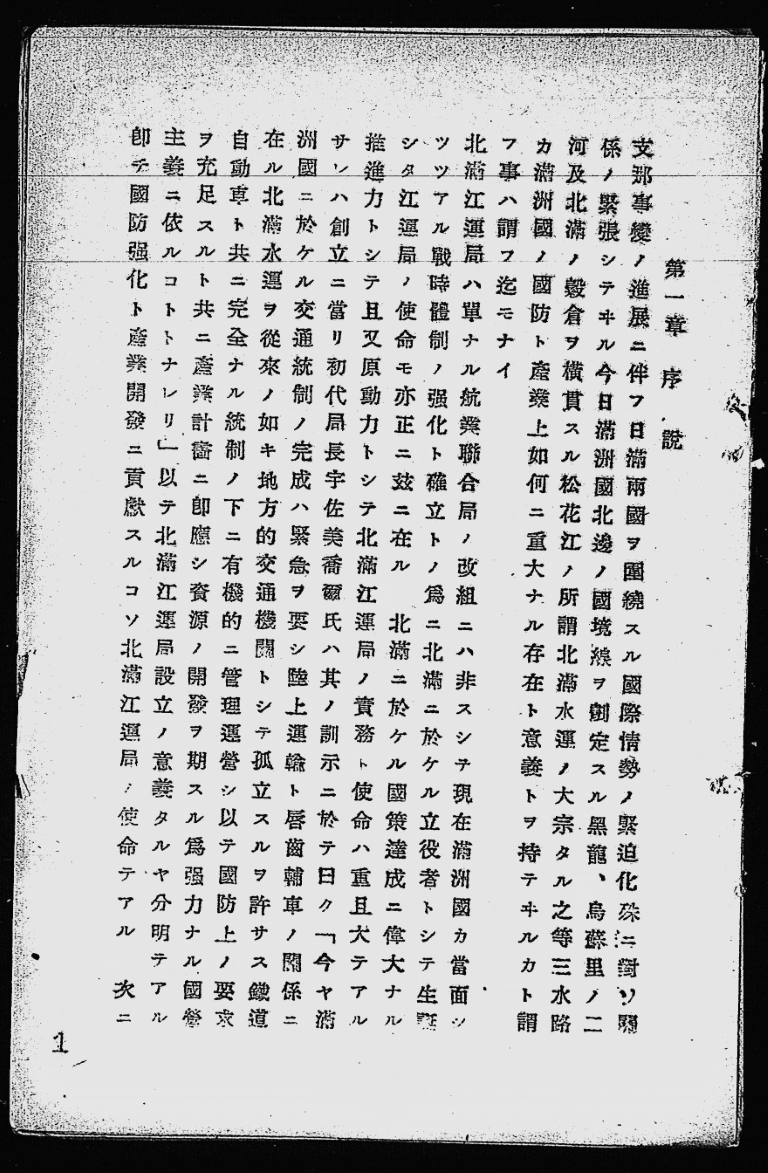 第一章　序説
支那事變ノ進展ニ伴フ日滿兩國ヲ圍繞スル國際情勢ノ緊迫化殊ニ對ソ關
係ノ緊張シテヰル今日滿洲國北邊ノ國境線ヲ劃定スル黑龍、烏蘇里ノ二
河及北滿ノ穀倉ヲ橫貫スル松花江ノ所謂北滿水運ノ大宗タル之等三水路
カ滿洲國ノ國防ト產業上如何ニ重大ナル存在ト意義トヲ持テヰルカト謂
フ事ハ謂フ迄モナイ
北滿江運局ハ單ナル航業聯合局ノ改組ニハ非スシテ現在滿洲國カ當面シ
ツツアル戰時體制ノ强化ト確立トノ爲ニ北滿ニ於ケル立役者トシテ生誕
シタ江運局ノ使命モ亦正ニ玆ニ在ル　北滿ニ於ケル國策達成ニ偉大ナル
推進力トシテ且又原動力トシテ北滿江運局ノ責務ト使命ハ重且大テアル
サレハ創立ニ當リ初代局長宇佐美喬爾氏ハ其ノ訓示ニ於テ曰ク「今ヤ滿
洲國ニ於ケル交通統制ノ完成ハ緊急ヲ要シ陸上運輸ト唇齒輔車ノ關係ニ
在ル北滿水運ヲ從來ノ如キ地方的交通機關トシテ孤立スルヲ許サス鐵道
自動車ト共ニ完全ナル統制ノ下ニ有機的ニ管理運營シ以テ國防上ノ要求
ヲ充足スルト共ニ產業計畫ニ卽應シ資源ノ開發ヲ期スル爲强力ナル國營
主義ニ依ルコトトナレリ」以テ北滿江運局設立ノ意義タルヤ分明テアル
卽チ國防强化ト產業開發ニ貢獻スルコソ北滿江運局ノ使命テアル　次ニ
1